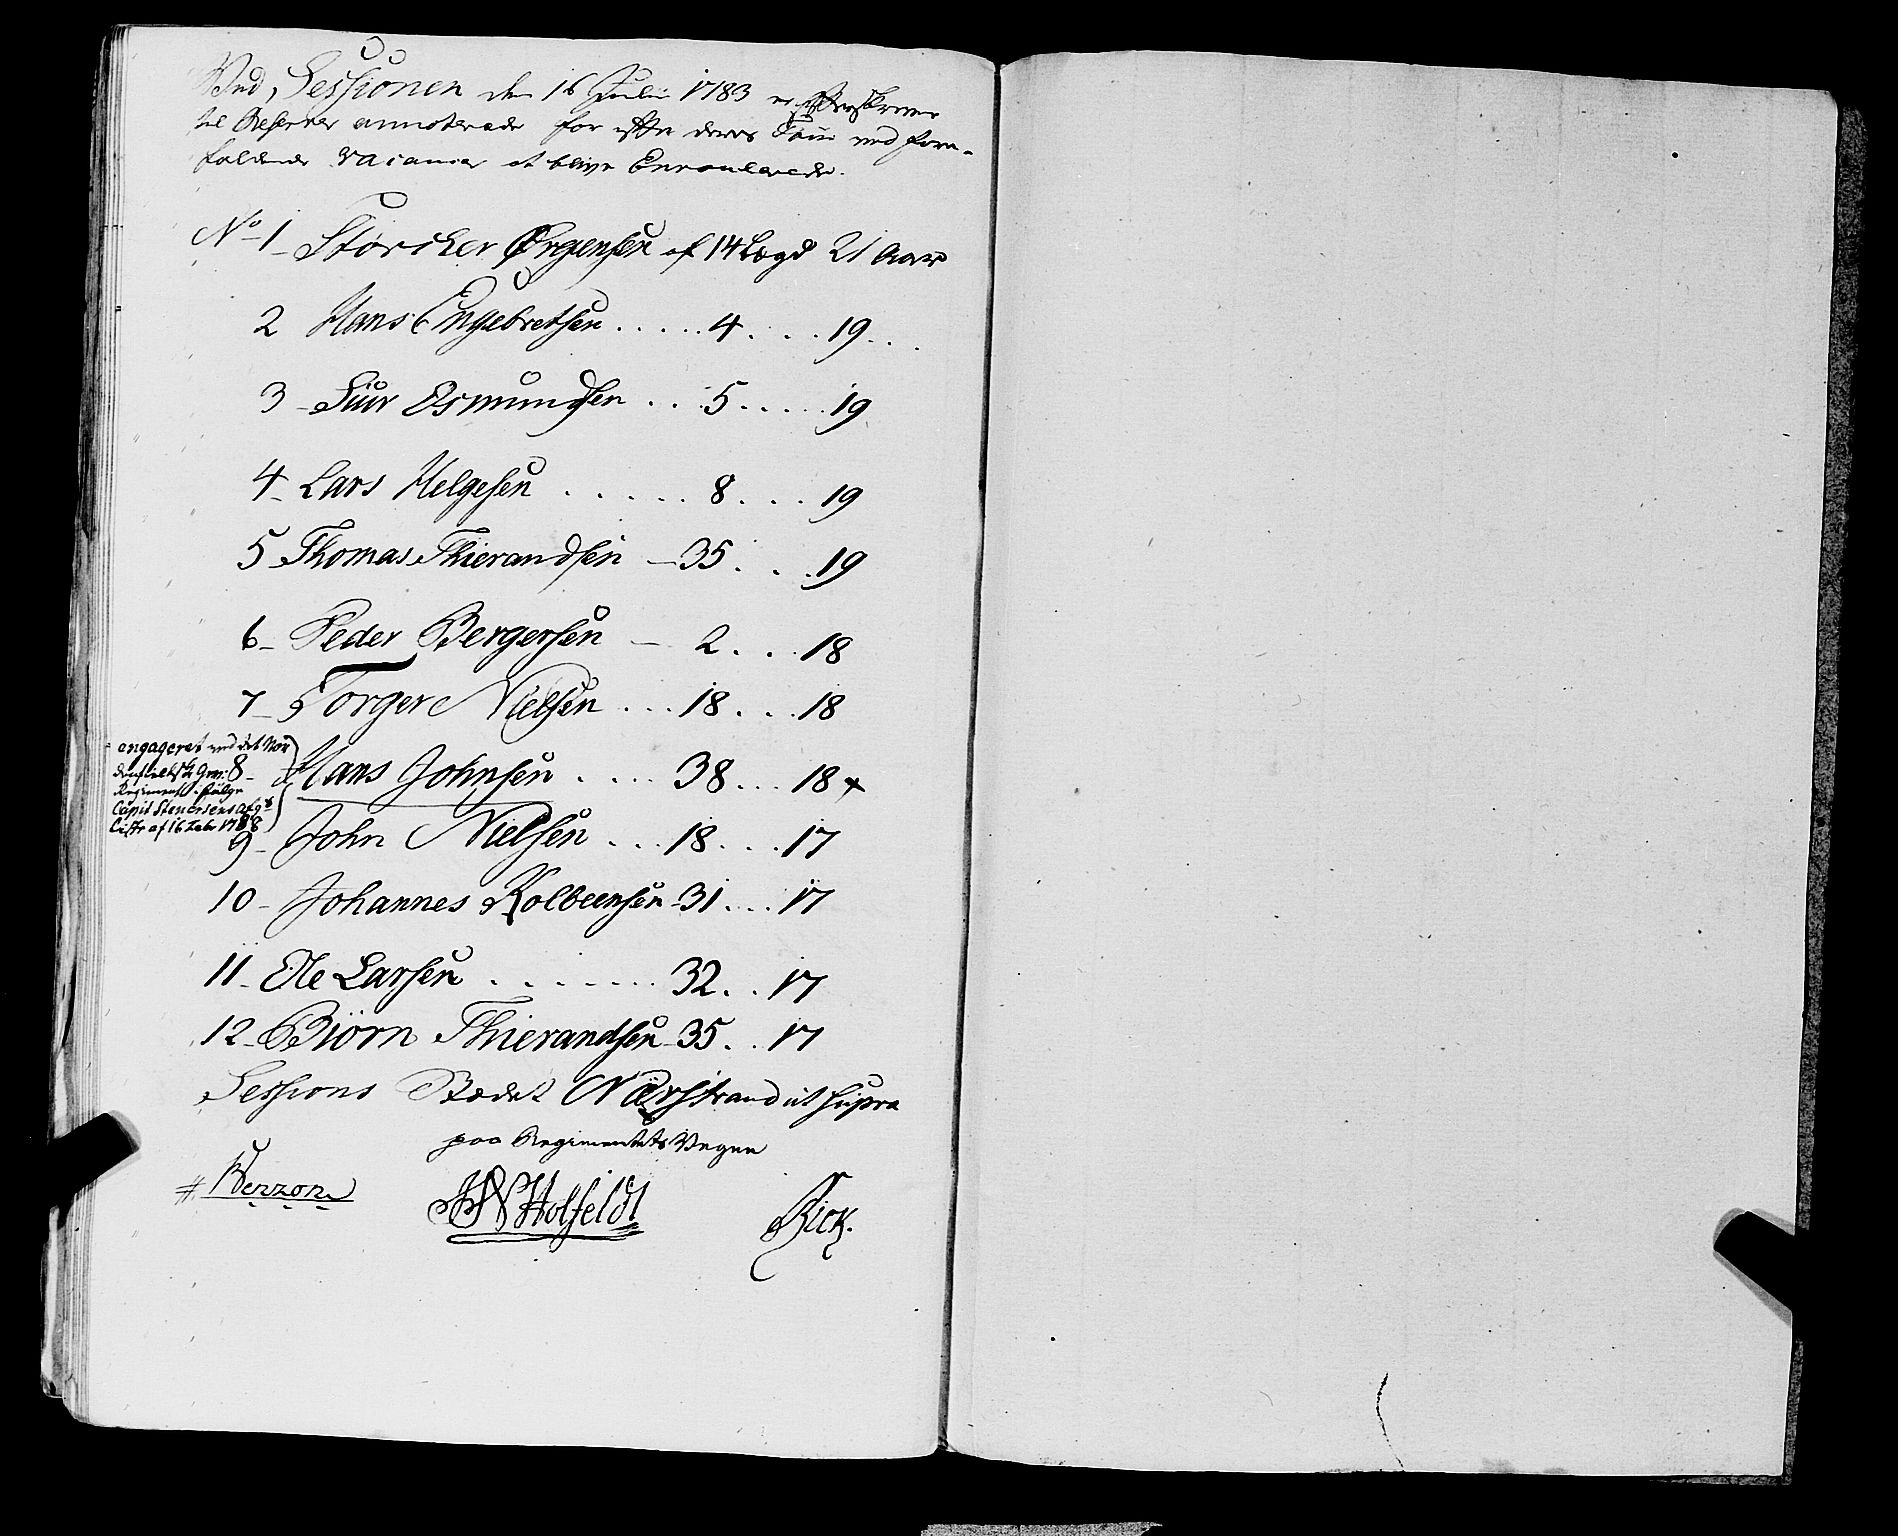 Ved Sessionen den 16 Julii 1783 er efterskrevne
til Reserver annoterede for efter deres Tour ved fore-
faldende Vacancer at blive Enroulerede.
No 1 - Størcker Ørgensen af 14 Lægd 21 Aar
2 Hans Engebretsen . . . . . 4 . . . . 19 . . .
3 - Siur Osmundsen . . . 5 . . . . . 19
4 - Lars Helgesen . . . . . . 8 . . . . 19
5 Thomas Thierandsen - 35 . . . 19
6 - Peder Bergersen - 2 . . . 18
7 - Torger Nielsen . . . 18 . . . 18
engageret ved det Nor
denfieldske Gev:
Regiment i følge
Capit Stenersens
Liste af 16 Febr 1788
8 - Hans Johnsen . . . . 38 . . . 18 x
9 - John Nielsen . . . 18 . . . . 17
10 - Johannes Kolbeensen - 31 . . . . 17
11 - Ole Larsen . . . . . . . 32 . . 17
12 - Biørn Thierandsen - 35 . . 17
Sessions Stædet Nærstrand ut supra
paa Regimentets Vegne
Holfeldt